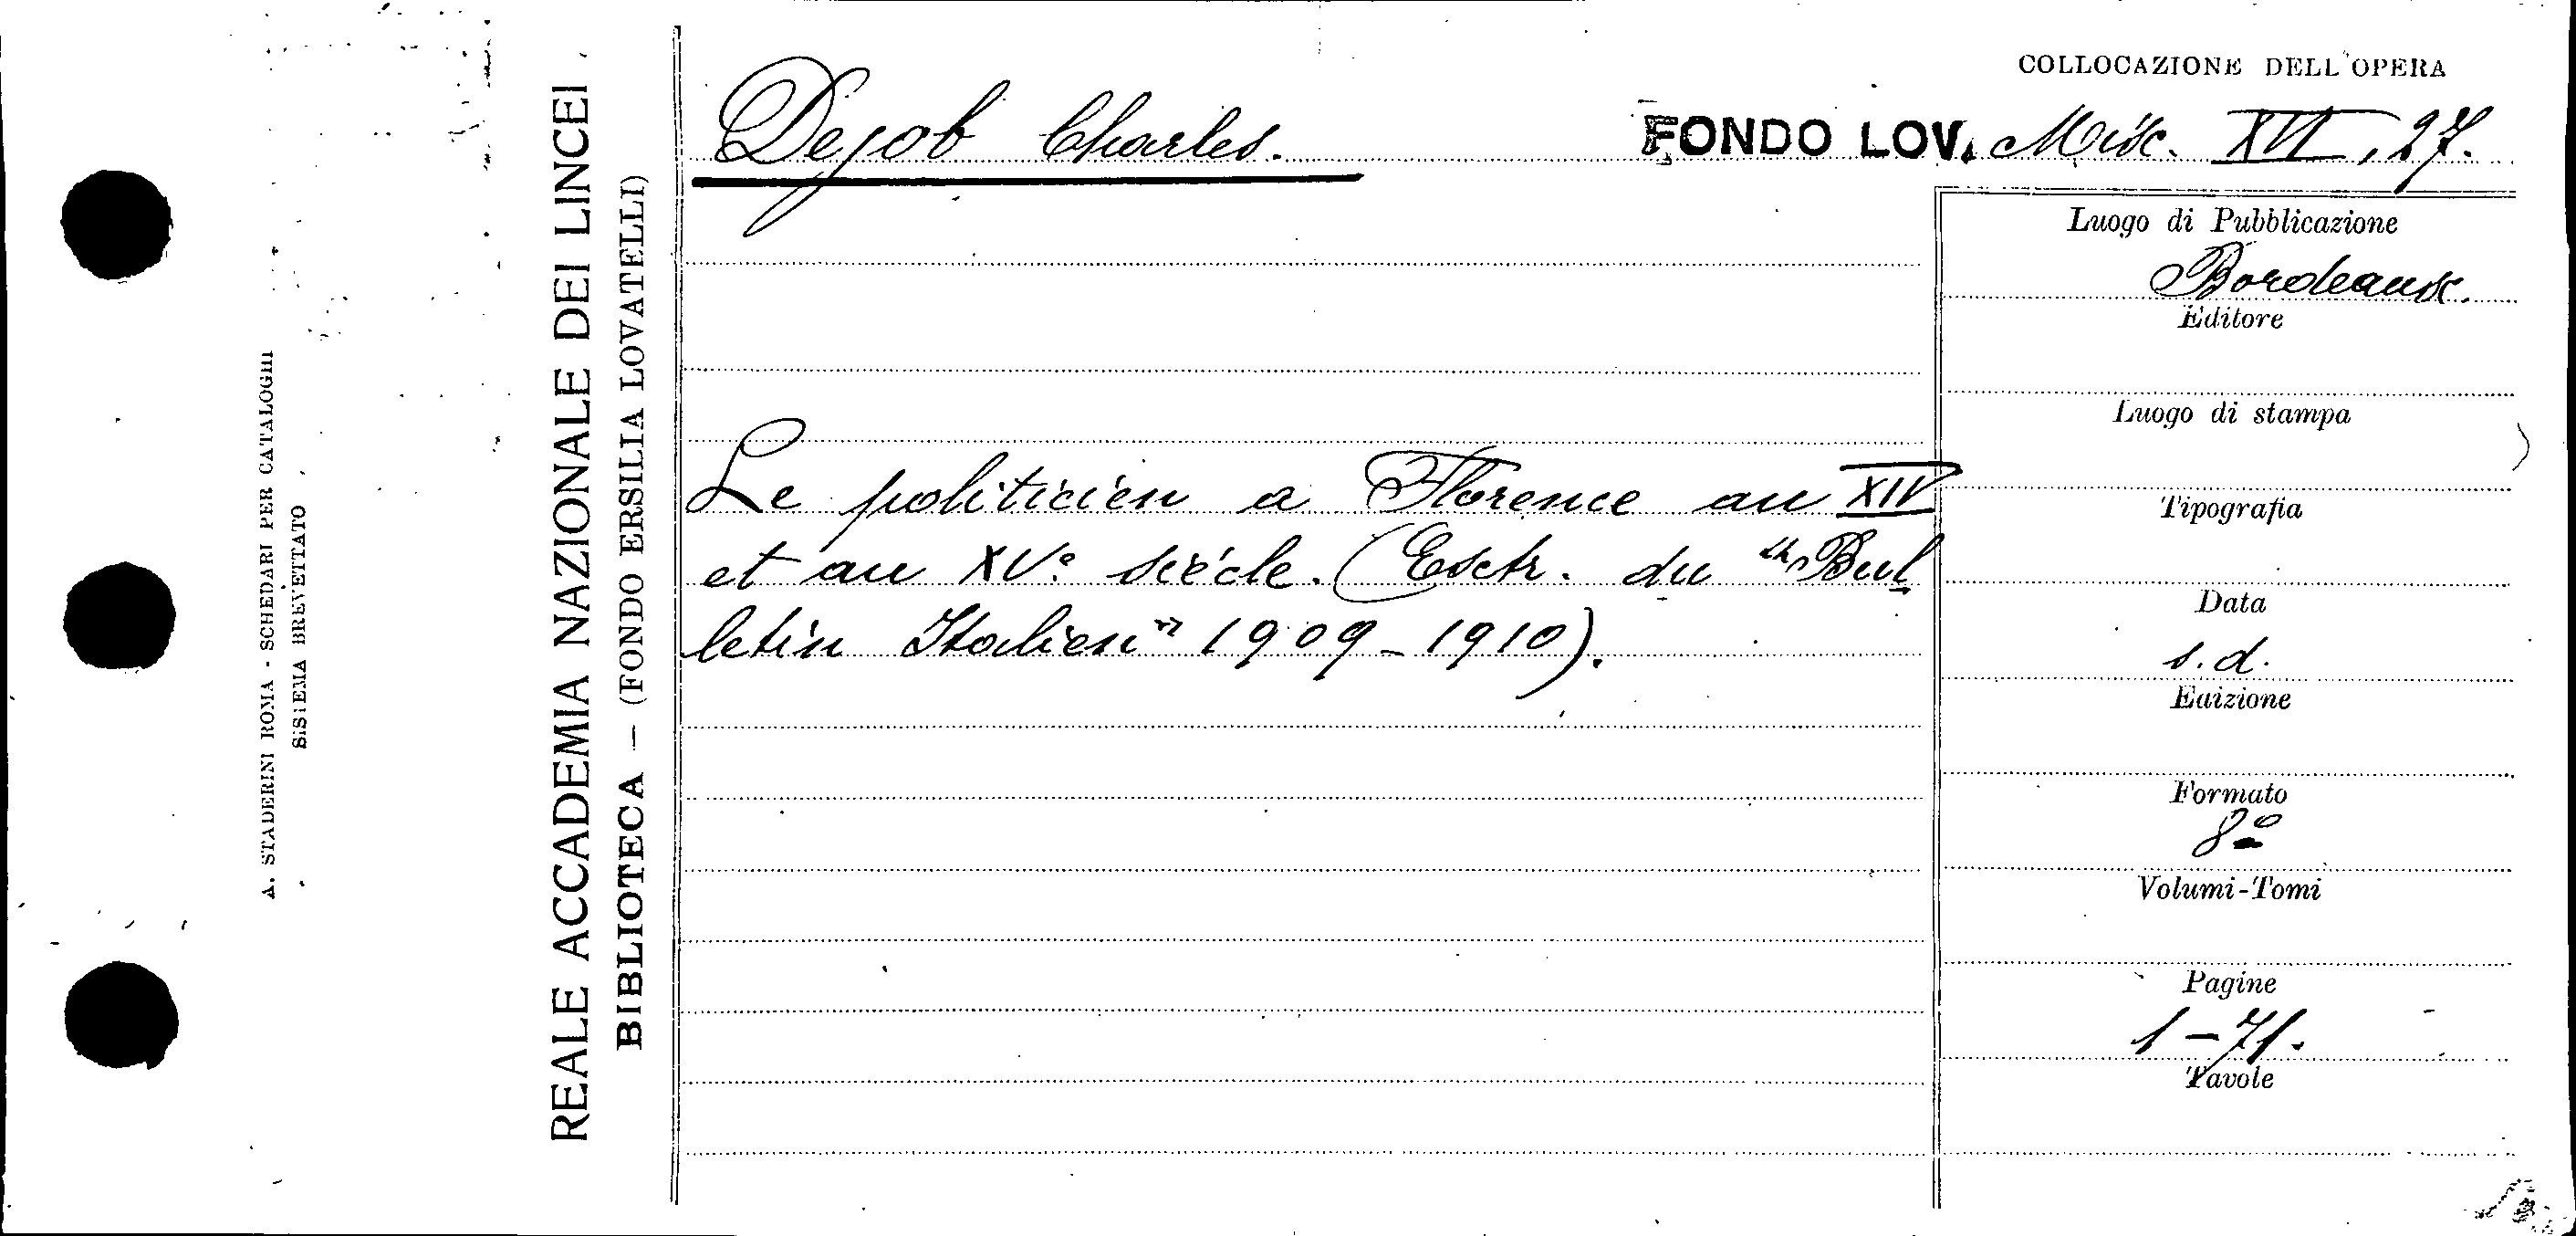 COLLOCAZIONE DELL'OPERA
Dejob Charles.
FONDO LOV. Misc. XVI, 27.
Le politicien a Florence au XIV
et au XV.e siècle. (Extr. du "Bul
letin Italien" 1909-1910).
Luogo di Pubblicazione
Bordeaux.
Editore
Luogo di stampa
Tipografia
Data
s.d.
Edizione
Formato
8º
Volumi-Tomi
Pagine
1-71.
Tavole
REALE ACCADEMIA NAZIONALE DEI LINCEI
BIBLIOTECA — (FONDO ERSILIA LOVATELLI)
A. STADERINI ROMA - SCHEDARI PER CATALOGHI
SISTEMA BREVETTATO